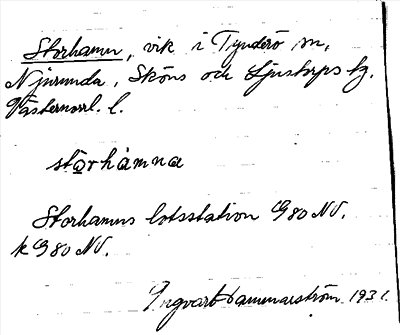 Storhamn, vik i Tynderö sn,
Njurunda, Sköns och Ljustorps tg.
Västernorrl. l.
sto̱rhàmna
Storhamns lotsstation G80 NV.
k G80 NV.
Yngvar Hammarström 1931.